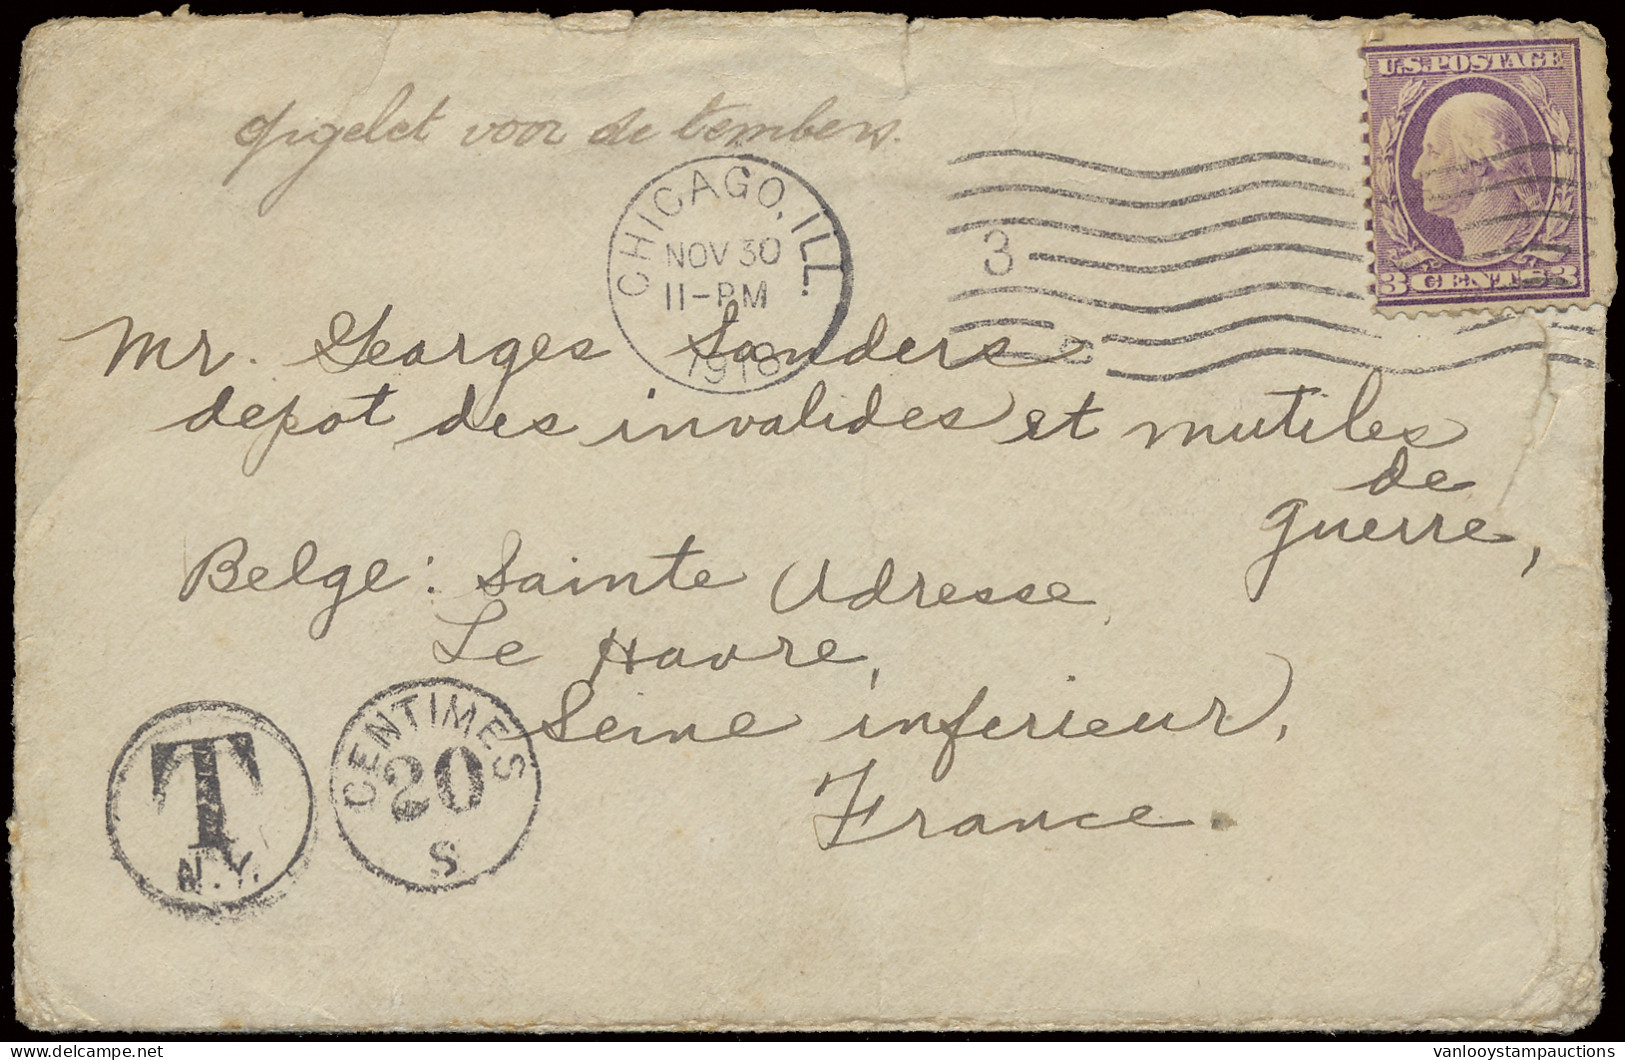 U.S. POSTAGE
3 CENTS 3
opgelet voor de tembers.
CHICAGO, ILL.
NOV 30
11-PM
1918
3
Mr. Georges Sanders
depot des invalides et mutiles
de
guerre,
Belge: Sainte Adresse,
Le Havre,
Seine inferieur,
France.
T
N.Y.
CENTIMES
20
S
vanlooystampauctions